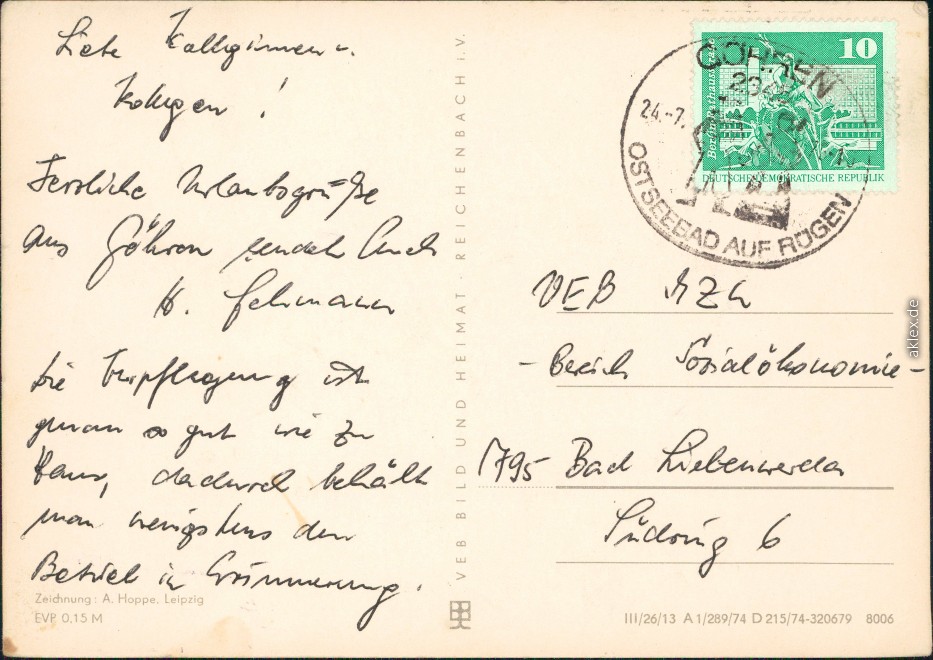 Liebe Kolleginnen u.
Kollegen !
Herzliche Urlaubsgrüße
aus Göhren sendet Euch
H. Gehrmann
Die Verpflegung ist
genau so gut wie zu
Haus, dadurch behält
man wenigstens den
Betrieb in Erinnerung.
Zeichnung: A. Hoppe, Leipzig
EVP 0,15 M
VEB BILD UND HEIMAT · REICHENBACH i. V.
10
DEUTSCHE DEMOKRATISCHE REPUBLIK
GÖHREN
24.-7.
OSTSEEBAD AUF RÜGEN
VEB
- Bereich Sozialökonomie -
795 Bad Liebenwerda
Südring 6
III/26/13 A 1/289/74 D 215/74-320679 8006
aklex.de